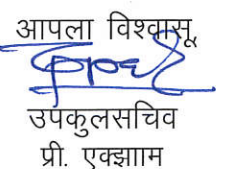 आपला विश्वासू,
उपकुलसचिव
प्री. एक्झााम